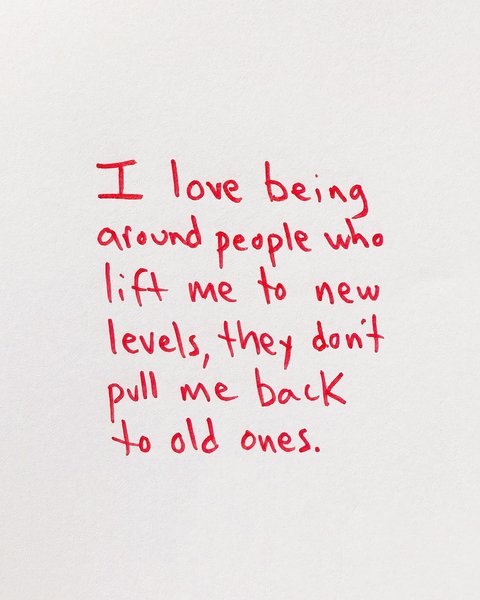 I love being
around people who
lift me to new
levels, they don't
pull me back
to old ones.